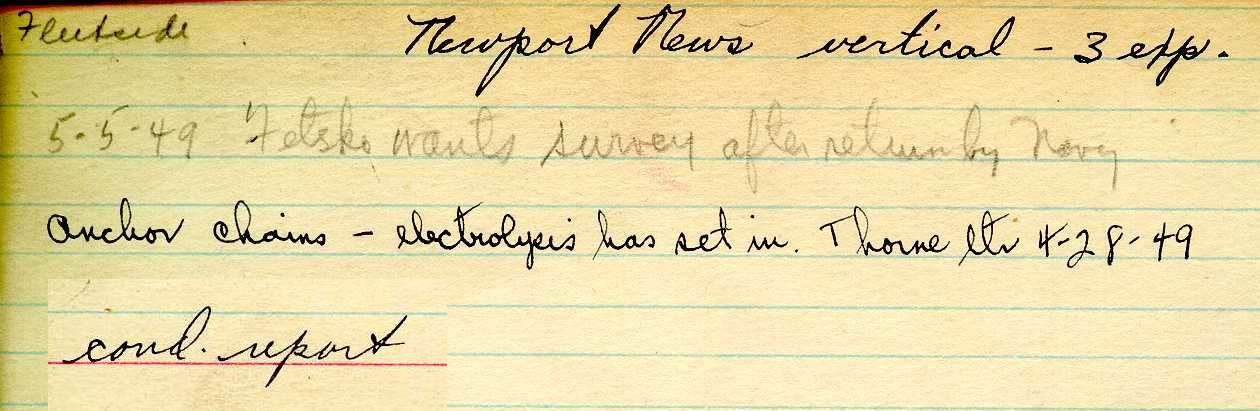 Fleetside
Newport News vertical - 3 exp.
5-5-49 Fetsko wants survey after return by Navy
Anchor chains - electrolysis has set in. Thorne ltr 4-28-49
cond. report